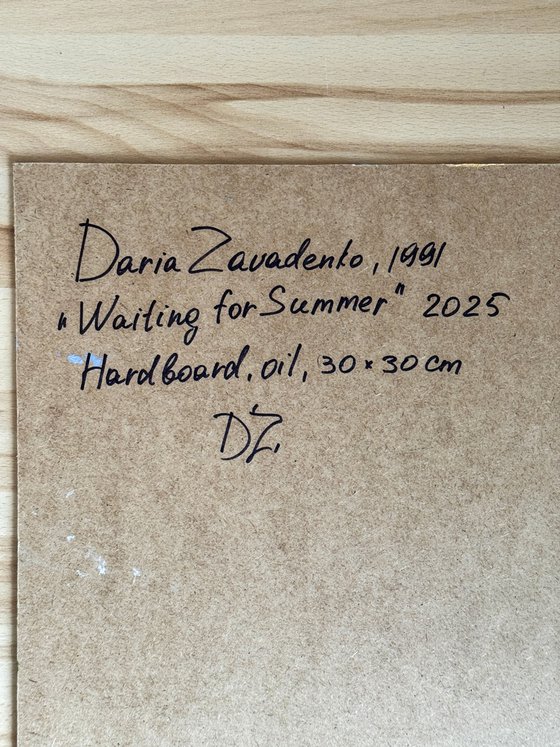 Daria Zavadenko, 1991
"Waiting for Summer" 2025
Hardboard, oil, 30 × 30 cm
DZ.